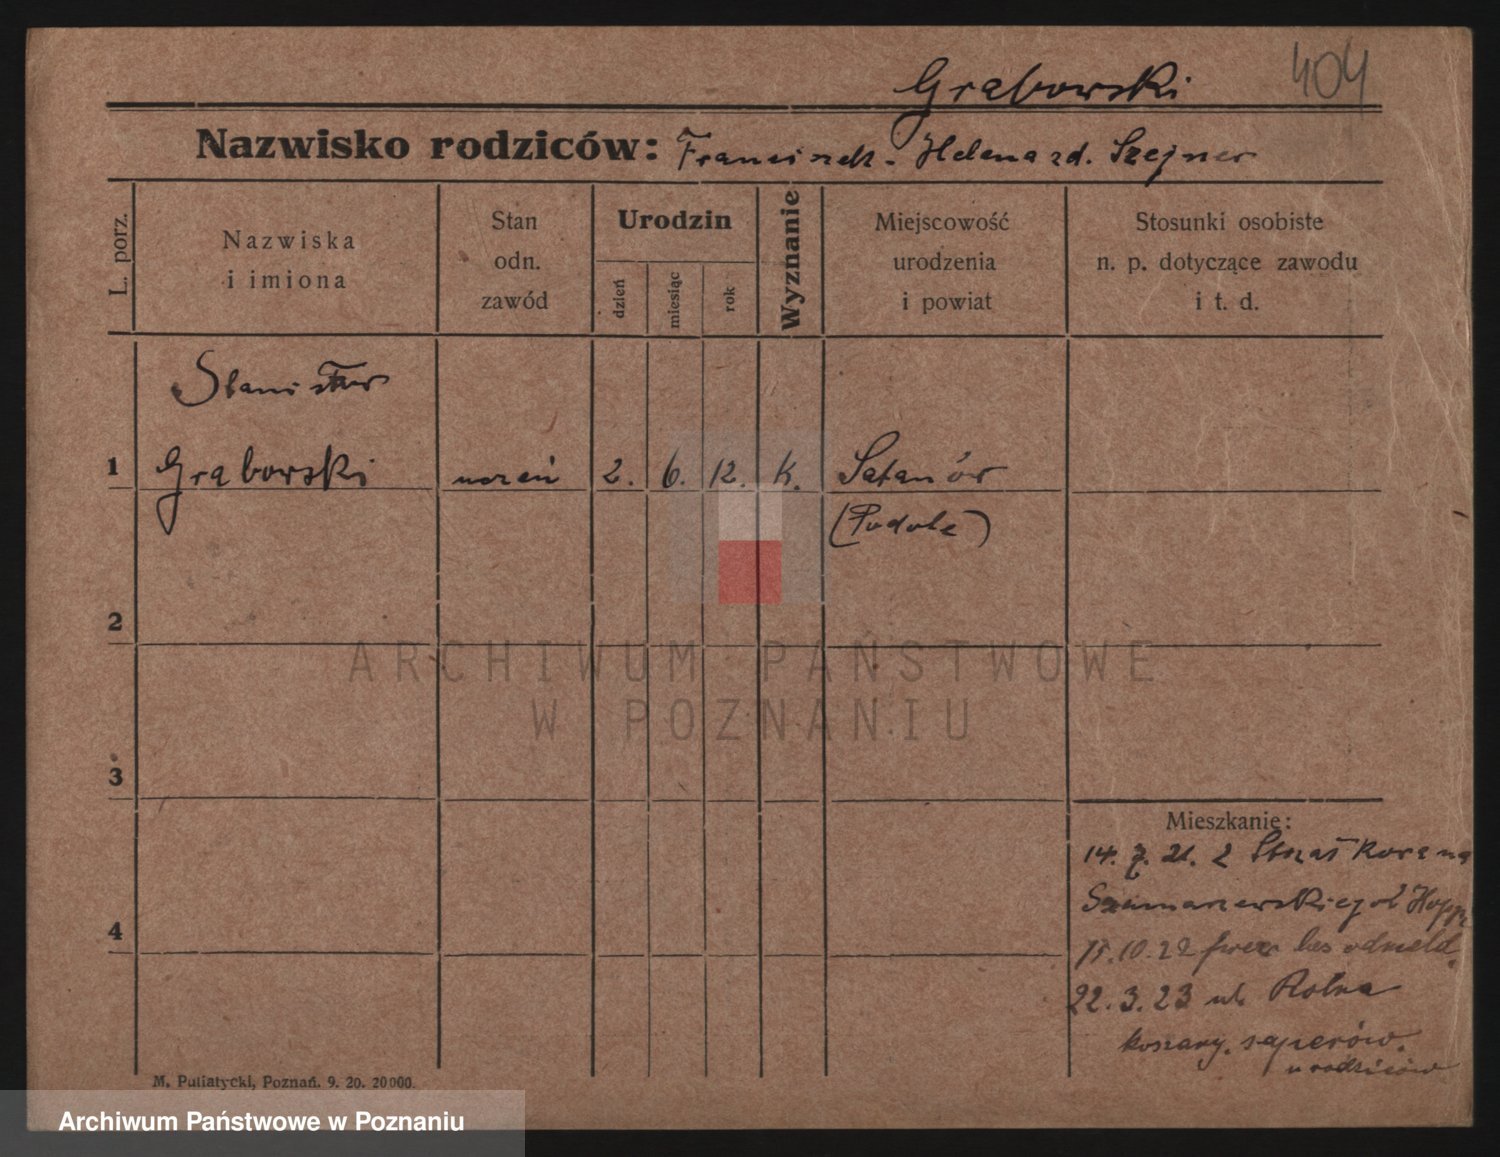 Grabowski 404
Nazwisko rodziców: Franciszek - Helena zd. Szejner
L. porz.
Nazwiska
i imiona
Stan
odn.
zawód
Urodzin
dzień
miesiąc
rok
Wyznanie
Miejscowość
urodzenia
i powiat
Stosunki osobiste
n. p. dotyczące zawodu
i t. d.
Stanisław
1 Grabowski uczeń 2. 6. 12. k. Satanów
(Podole)
2
ARCHIWUM PAŃSTWOWE
W POZNANIU
3
Mieszkanie:
14. 7. 21. z
4
15.10.22 przez odmeld.
22.3.23 ul. Rolna
koszary. saperów.
u rodziców
M. Putiatycki, Poznań. 9. 20. 20000.
Archiwum Państwowe w Poznaniu